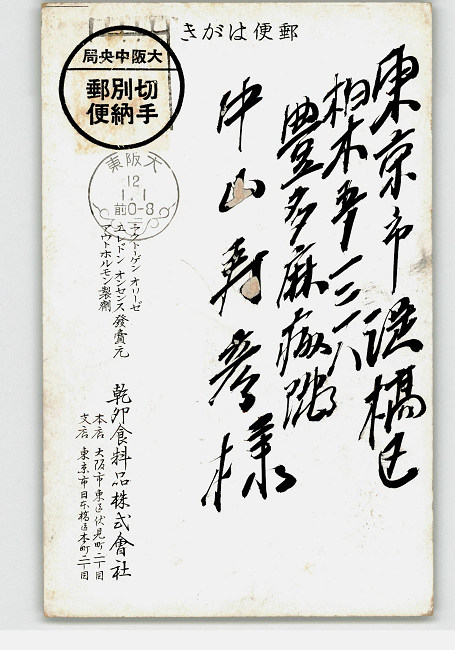 郵便はがき
大阪中央局
切手
別納
郵便
大阪東
12
1.1
前0-8
東京市淀橋区
柏木
豊多摩病院
中山壽彦様
ラクトーゲン オリーゼ
エレドン オンセンス 發賣元
アウトホルモン製劑
乾卯食料品株式會社
本店 大阪市東區伏見町二丁目
支店 東京市日本橋區本町二丁目